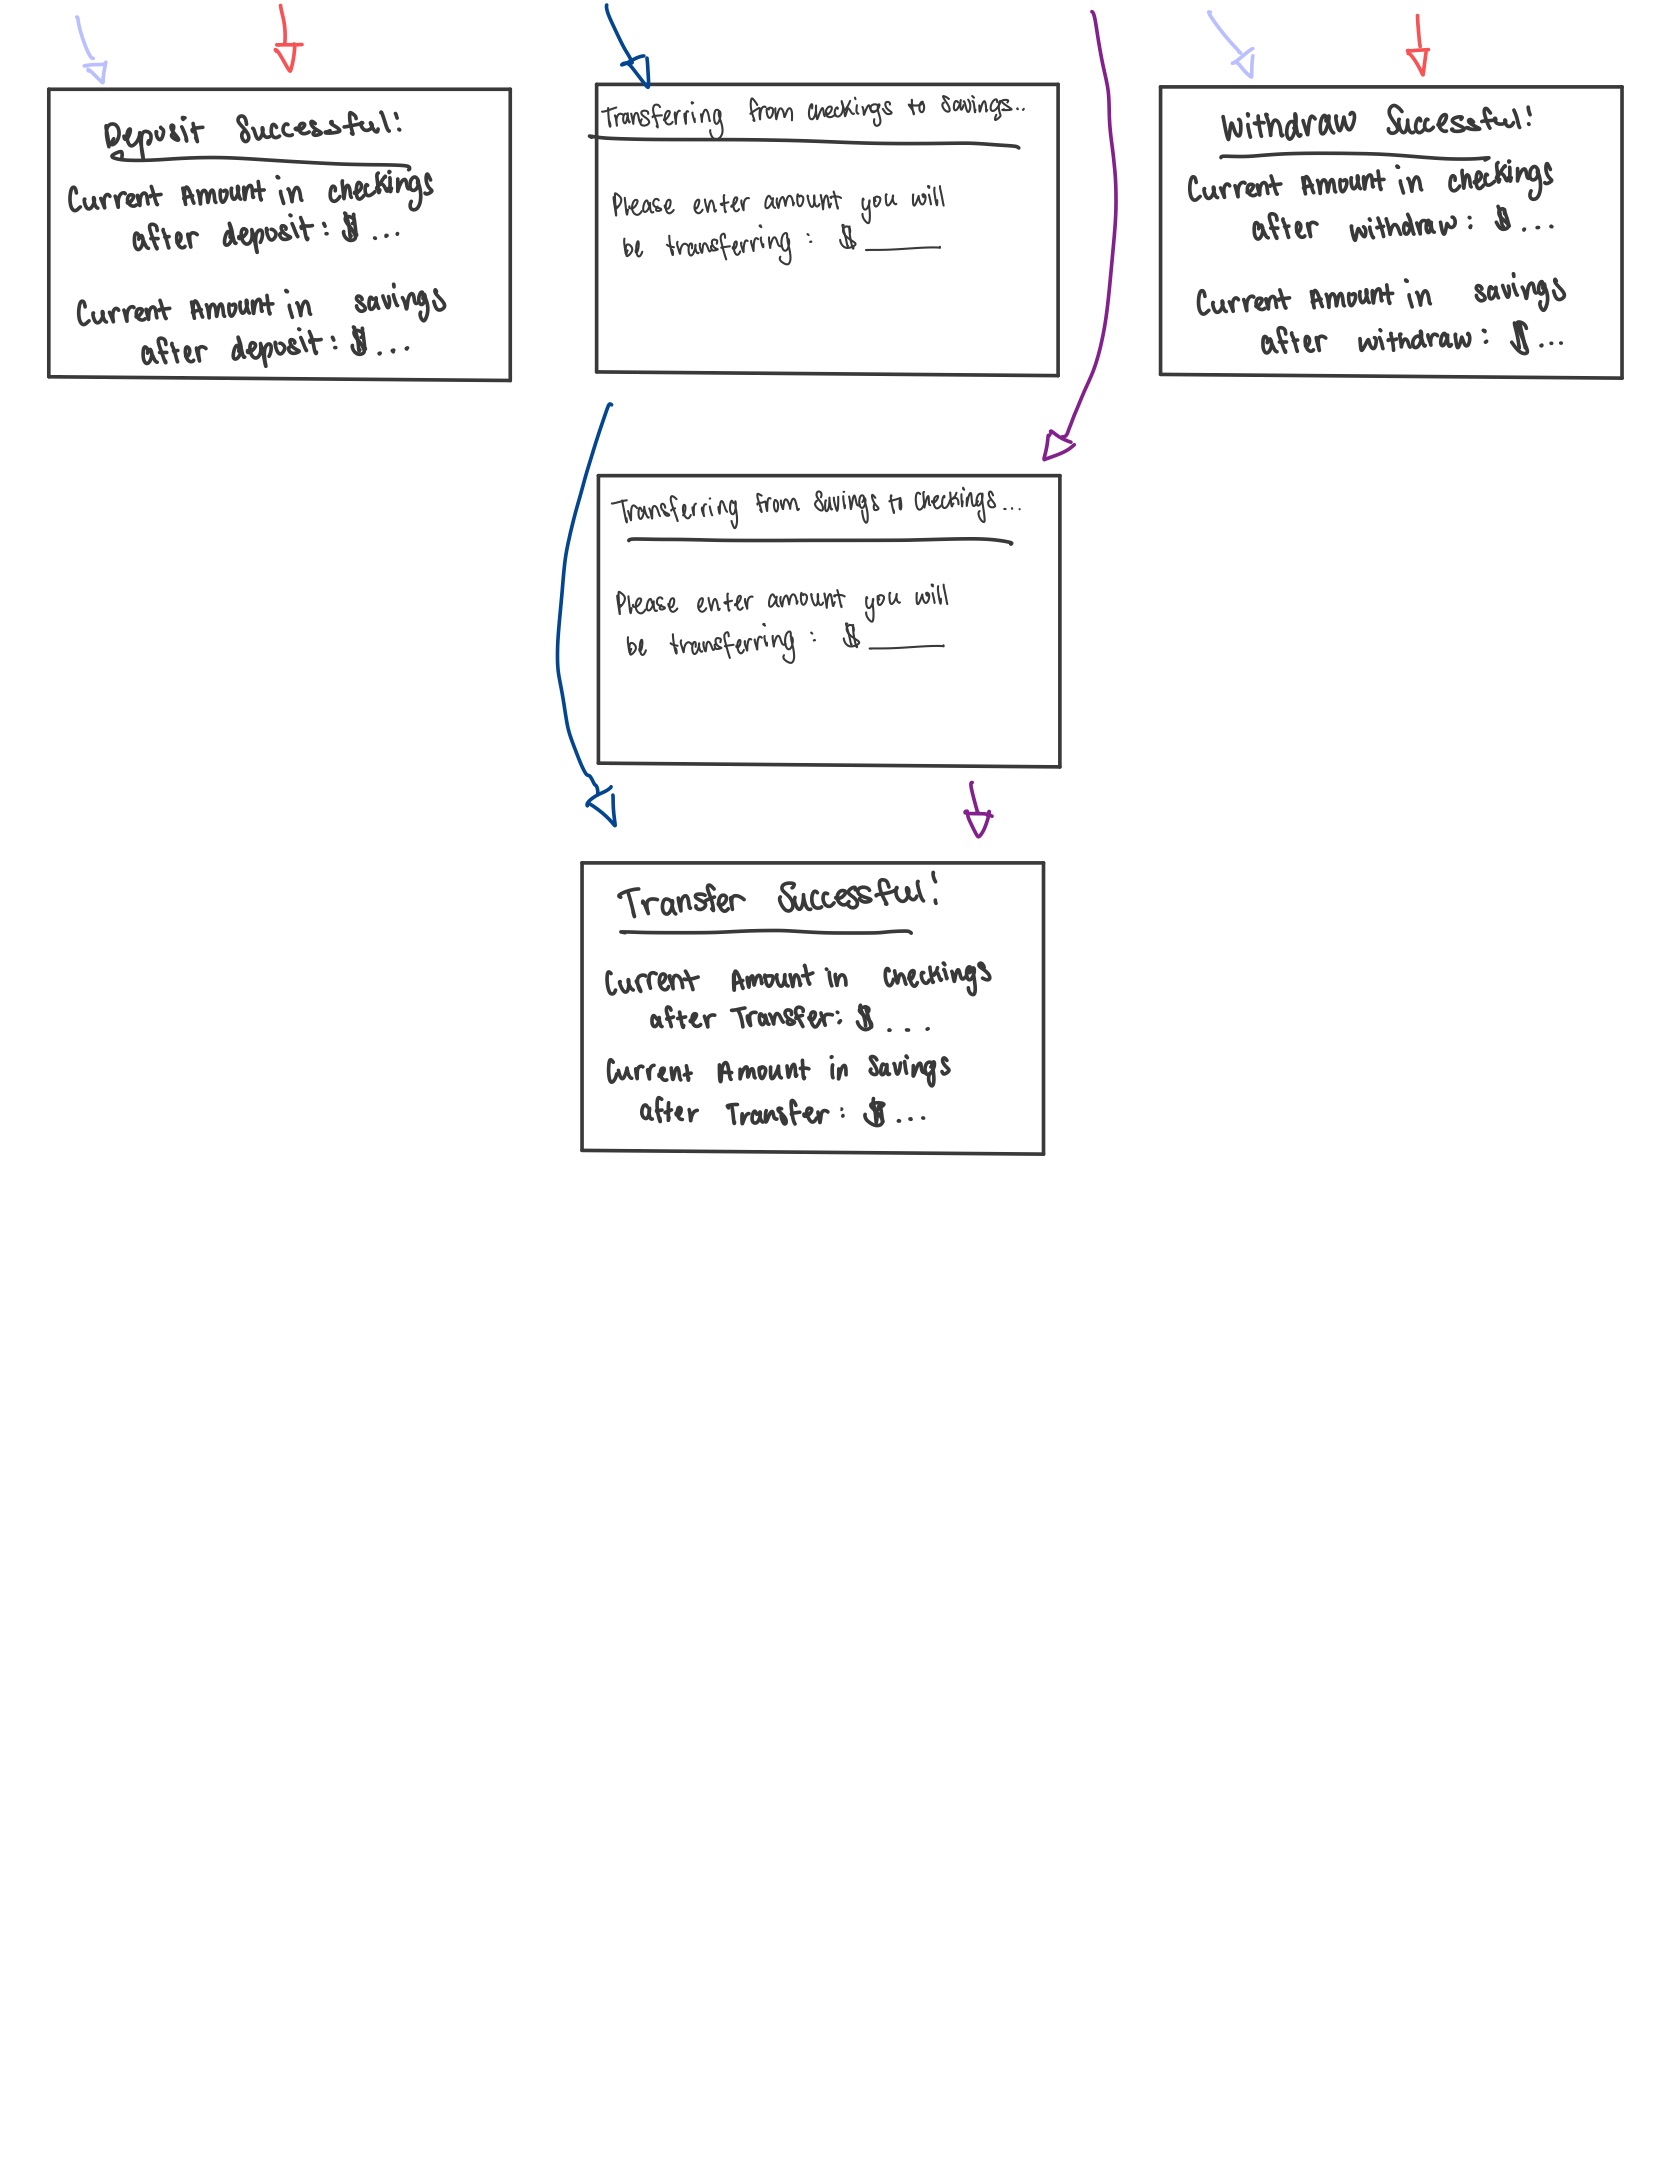 Deposit Successful!
Current Amount in checkings
after deposit: $ ...
Current Amount in savings
after deposit: $ ...
Transferring from checkings to Savings...
Please enter amount you will
be transferring: $ ______
Withdraw Successful!
Current Amount in checkings
after withdraw: $ ...
Current Amount in savings
after withdraw: $ ...
Transferring from Savings to Checkings...
Please enter amount you will
be transferring: $ ______
Transfer Successful!
Current Amount in checkings
after Transfer: $ ...
Current Amount in Savings
after Transfer: $ ...